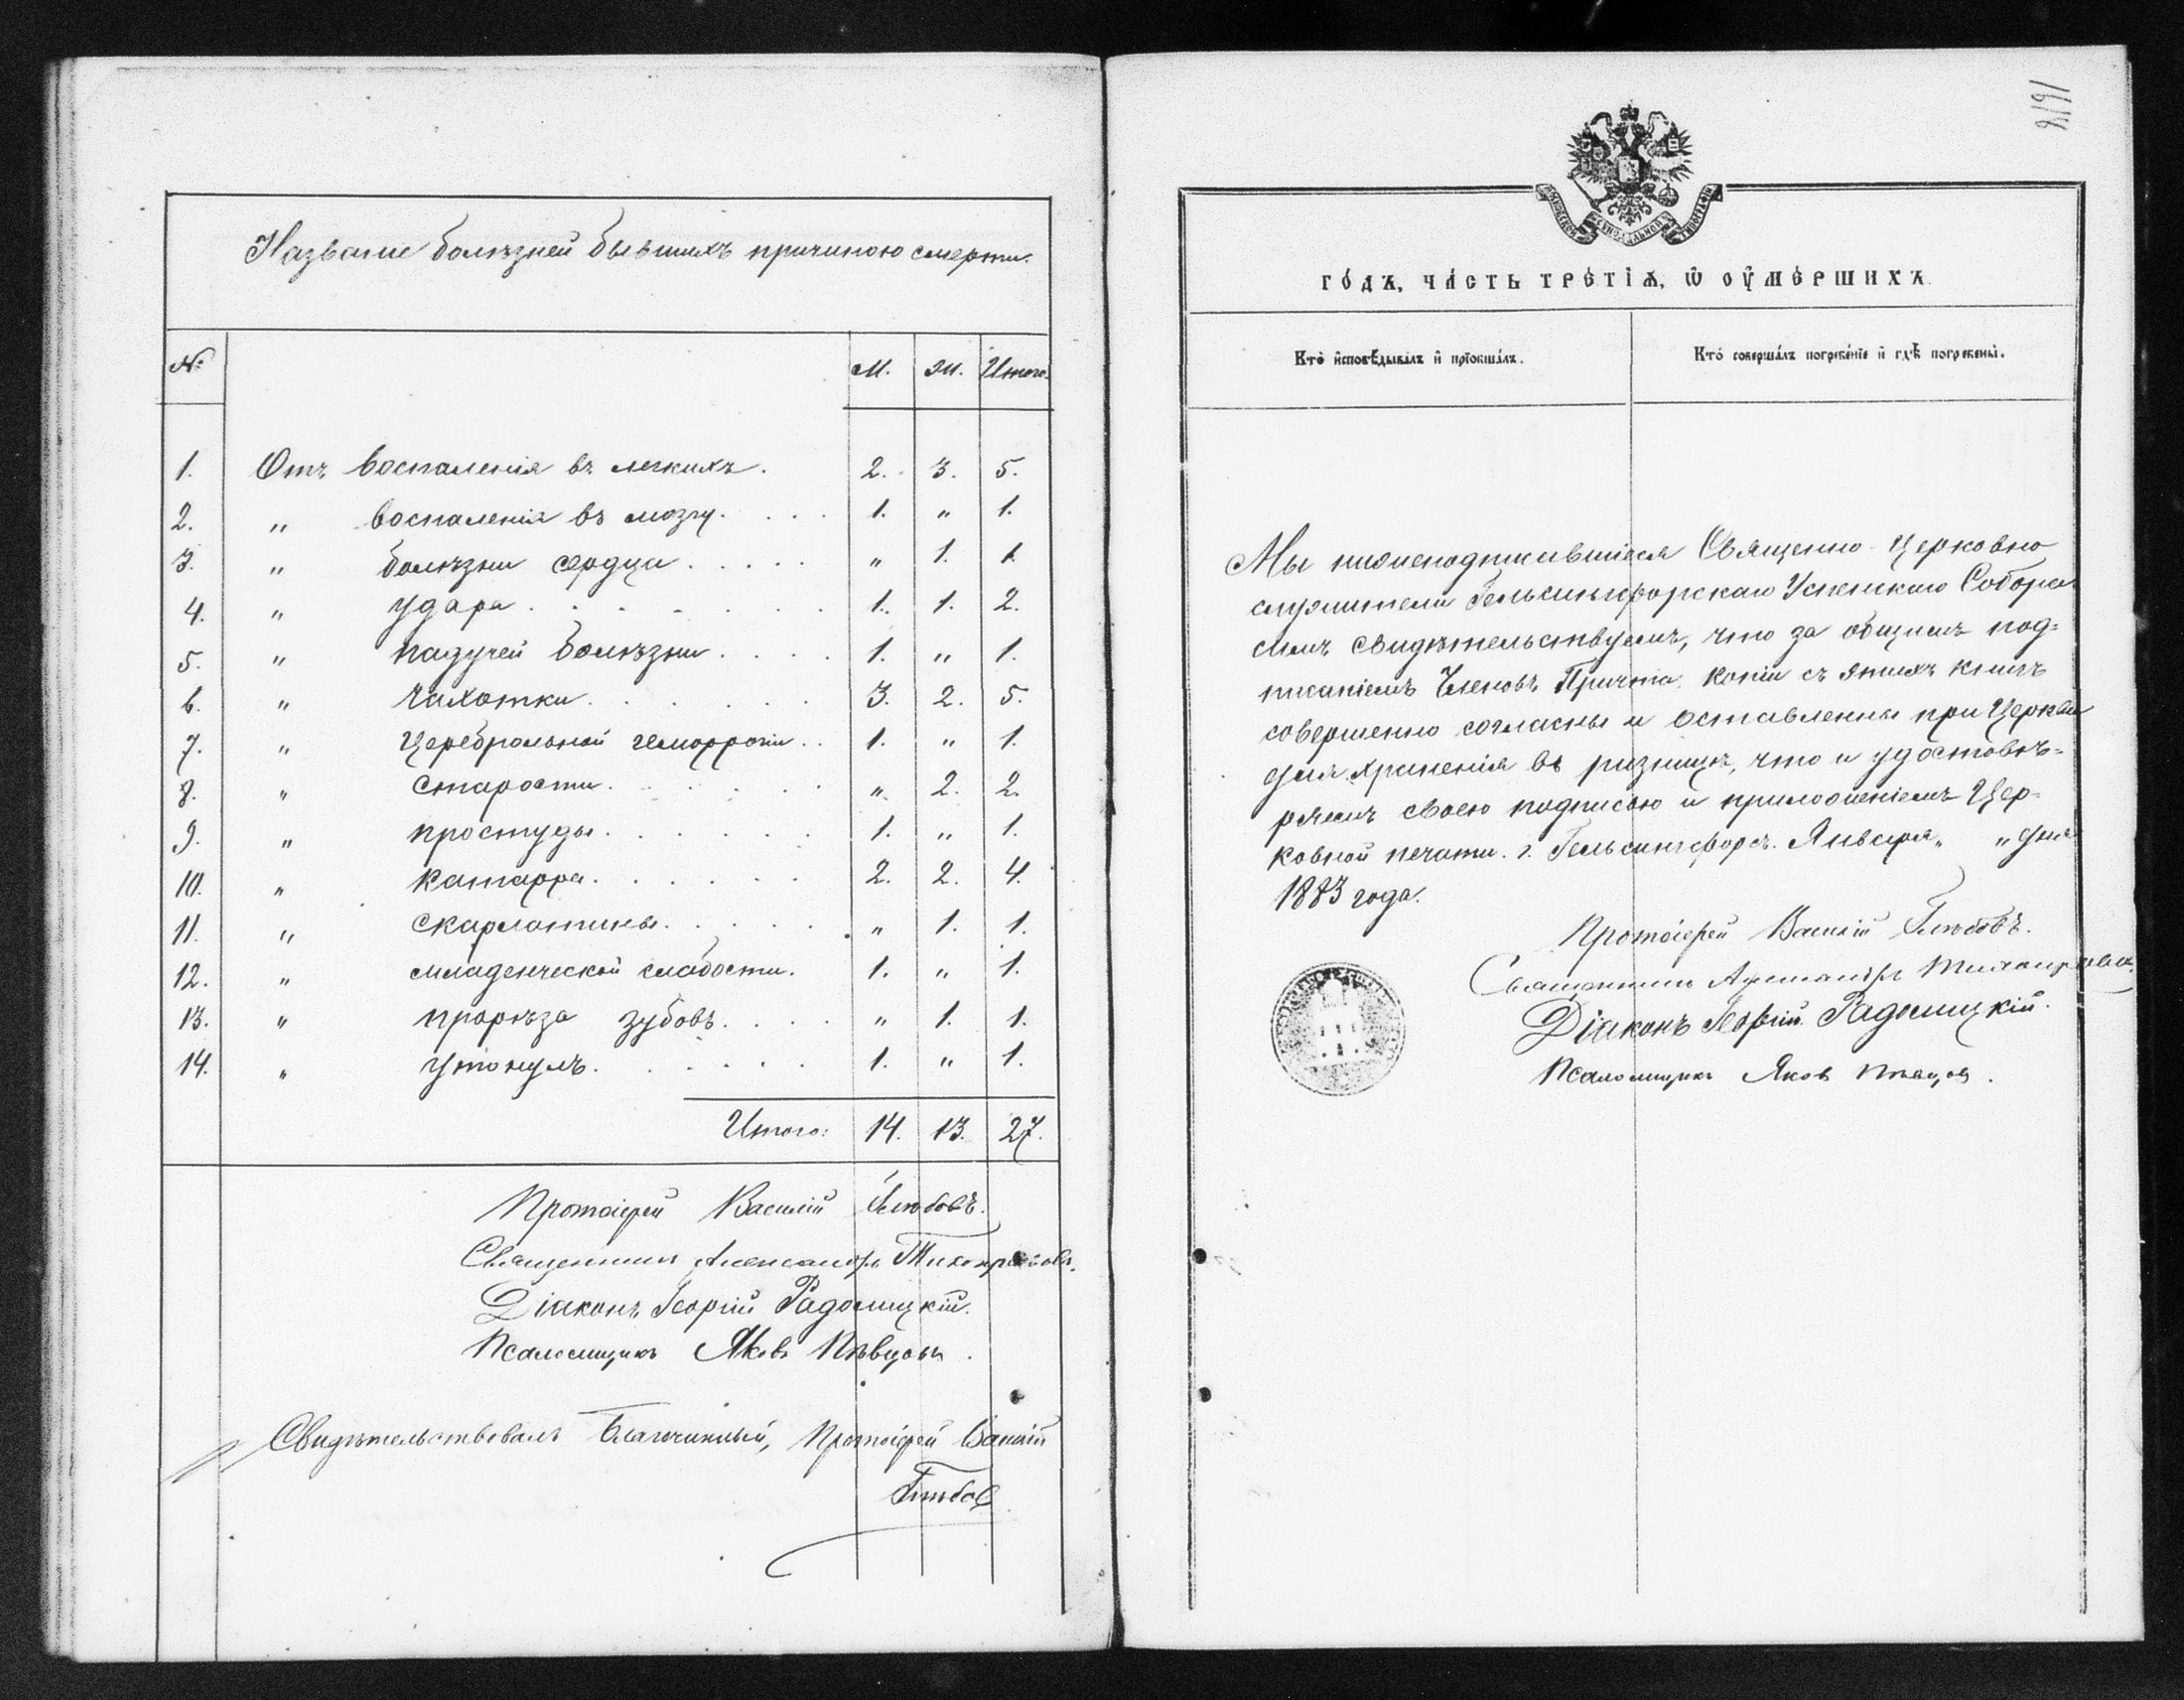 Названіе болѣзней бывшихъ причиною смерти.
№ М. Ж. Итого.
1. Отъ воспаленія въ легкихъ. 2. 3. 5.
2. " воспаленія въ мозгу. . . . 1. " 1.
3. " болѣзни сердца . . . . . " 1. 1.
4. " удара . . . . . . . 1. 1. 2.
5. " падучей болѣзни . . . . 1. " 1.
6. " чахотки . . . . . . 3. 2. 5.
7. " Церебральной геморрогіи . . 1. " 1.
8. " старости . . . . . . " 2. 2.
9. " простуды . . . . . . 1. " 1.
10. " катарра . . . . . . 2. 2. 4.
11. " скарлатины . . . . . " 1. 1.
12. " младенческой слабости. 1. " 1.
13. " прорѣза зубовъ . . . . " 1. 1.
14. " утонулъ . . . . . . 1. " 1.
Итого: 14. 13. 27.
Протоіерей Василій
Священникъ Александръ
Діаконъ Георгій Радомицкій.
Псаломщикъ Яковъ Пѣвцовъ.
Свидѣтельствовалъ Благочинный, Протоіерей Василій
ГО́ДЪ, ЧА́СТЬ ТРЕ́ТІѦ, Ѡ҆ ОУ҆МЕ́РШИХЪ
Кто̀ и҆сповѣ́дывалъ и҆ прїѡбща́лъ.
Кто̀ соверша́лъ погребе́нїе и҆ гдѣ̀ погребены̀.
Мы нижеподписавшіеся Священно-церковно
служители Гельсингфорскаго Успенскаго Собора
симъ свидѣтельствуемъ, что за общимъ под=
писаніемъ Членовъ Причта копіи съ этихъ книгъ
совершенно согласны и оставлены при Церкви
для храненія въ ризницѣ, что и удостовѣ=
ряемъ своею подписью и приложеніемъ Цер=
ковной печати. г. Гельсингфорсъ. Января „ „ дня
1883 года.
Протоіерей Василій
Священникъ Александръ
Діаконъ Георгій Радомицкій.
Псаломщикъ Яковъ Пѣвцовъ.